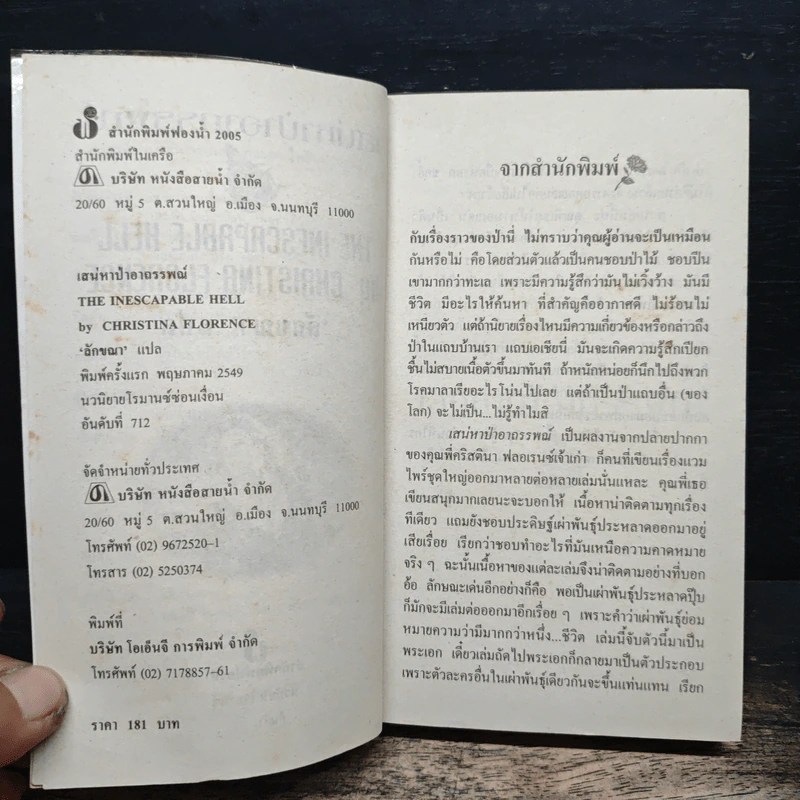 สำนักพิมพ์ฟองน้ำ 2005
สำนักพิมพ์ในเครือ
บริษัท หนังสือสายน้ำ จำกัด
20/60 หมู่ 5 ต.สวนใหญ่ อ.เมือง จ.นนทบุรี 11000
เสน่หาป่าอาถรรพณ์
THE INESCAPABLE HELL
by CHRISTINA FLORENCE
'ลักขณา' แปล
พิมพ์ครั้งแรก พฤษภาคม 2549
นวนิยายโรมานซ์ซ่อนเงื่อน
อันดับที่ 712
จัดจำหน่ายทั่วประเทศ
บริษัท หนังสือสายน้ำ จำกัด
20/60 หมู่ 5 ต.สวนใหญ่ อ.เมือง จ.นนทบุรี 11000
โทรศัพท์ (02) 9672520-1
โทรสาร (02) 5250374
พิมพ์ที่
บริษัท โอเอ็นจี การพิมพ์ จำกัด
โทรศัพท์ (02) 7178857-61
ราคา 181 บาท
จากสำนักพิมพ์
กับเรื่องราวของป่านี่ ไม่ทราบว่าคุณผู้อ่านจะเป็นเหมือน
กันหรือไม่ คือโดยส่วนตัวแล้วเป็นคนชอบป่าไม้ ชอบปีน
เขามากกว่าทะเล เพราะมีความรู้สึกว่ามันไม่เวิ้งว้าง มันมี
ชีวิต มีอะไรให้ค้นหา ที่สำคัญคืออากาศดี ไม่ร้อนไม่
เหนียวตัว แต่ถ้านิยายเรื่องไหนมีความเกี่ยวข้องหรือกล่าวถึง
ป่าในแถบบ้านเรา แถบเอเชียนี่ มันจะเกิดความรู้สึกเปียก
ชื้นไม่สบายเนื้อตัวขึ้นมาทันที ถ้าหนักหน่อยก็นึกไปถึงพวก
โรคมาลาเรียอะไรโน่นไปเลย แต่ถ้าเป็นป่าแถบอื่น (ของ
โลก) จะไม่เป็น...ไม่รู้ทำไมสิ
เสน่หาป่าอาถรรพณ์ เป็นผลงานจากปลายปากกา
ของคุณพี่คริสตินา ฟลอเรนซ์เจ้าเก่า ก็คนที่เขียนเรื่องแวม
ไพร์ชุดใหญ่ออกมาหลายต่อหลายเล่มนั่นแหละ คุณพี่เธอ
เขียนสนุกมากเลยนะจะบอกให้ เนื้อหาน่าติดตามทุกเรื่อง
ทีเดียว แถมยังชอบประดิษฐ์เผ่าพันธุ์ประหลาดออกมาอยู่
เสียเรื่อย เรียกว่าชอบทำอะไรที่มันเหนือความคาดหมาย
จริง ๆ ฉะนั้นเนื้อหาของแต่ละเล่มจึงน่าติดตามอย่างที่บอก
อ้อ ลักษณะเด่นอีกอย่างก็คือ พอเป็นเผ่าพันธุ์ประหลาดปุ๊บ
ก็มักจะมีเล่มต่อออกมาอีกเรื่อย ๆ เพราะคำว่าเผ่าพันธุ์ย่อม
หมายความว่ามีมากกว่าหนึ่ง...ชีวิต เล่มนี้จับตัวนี้มาเป็น
พระเอก เดี๋ยวเล่มถัดไปพระเอกก็กลายมาเป็นตัวประกอบ
เพราะตัวละครอื่นในเผ่าพันธุ์เดียวกันจะขึ้นแท่นแทน เรียก